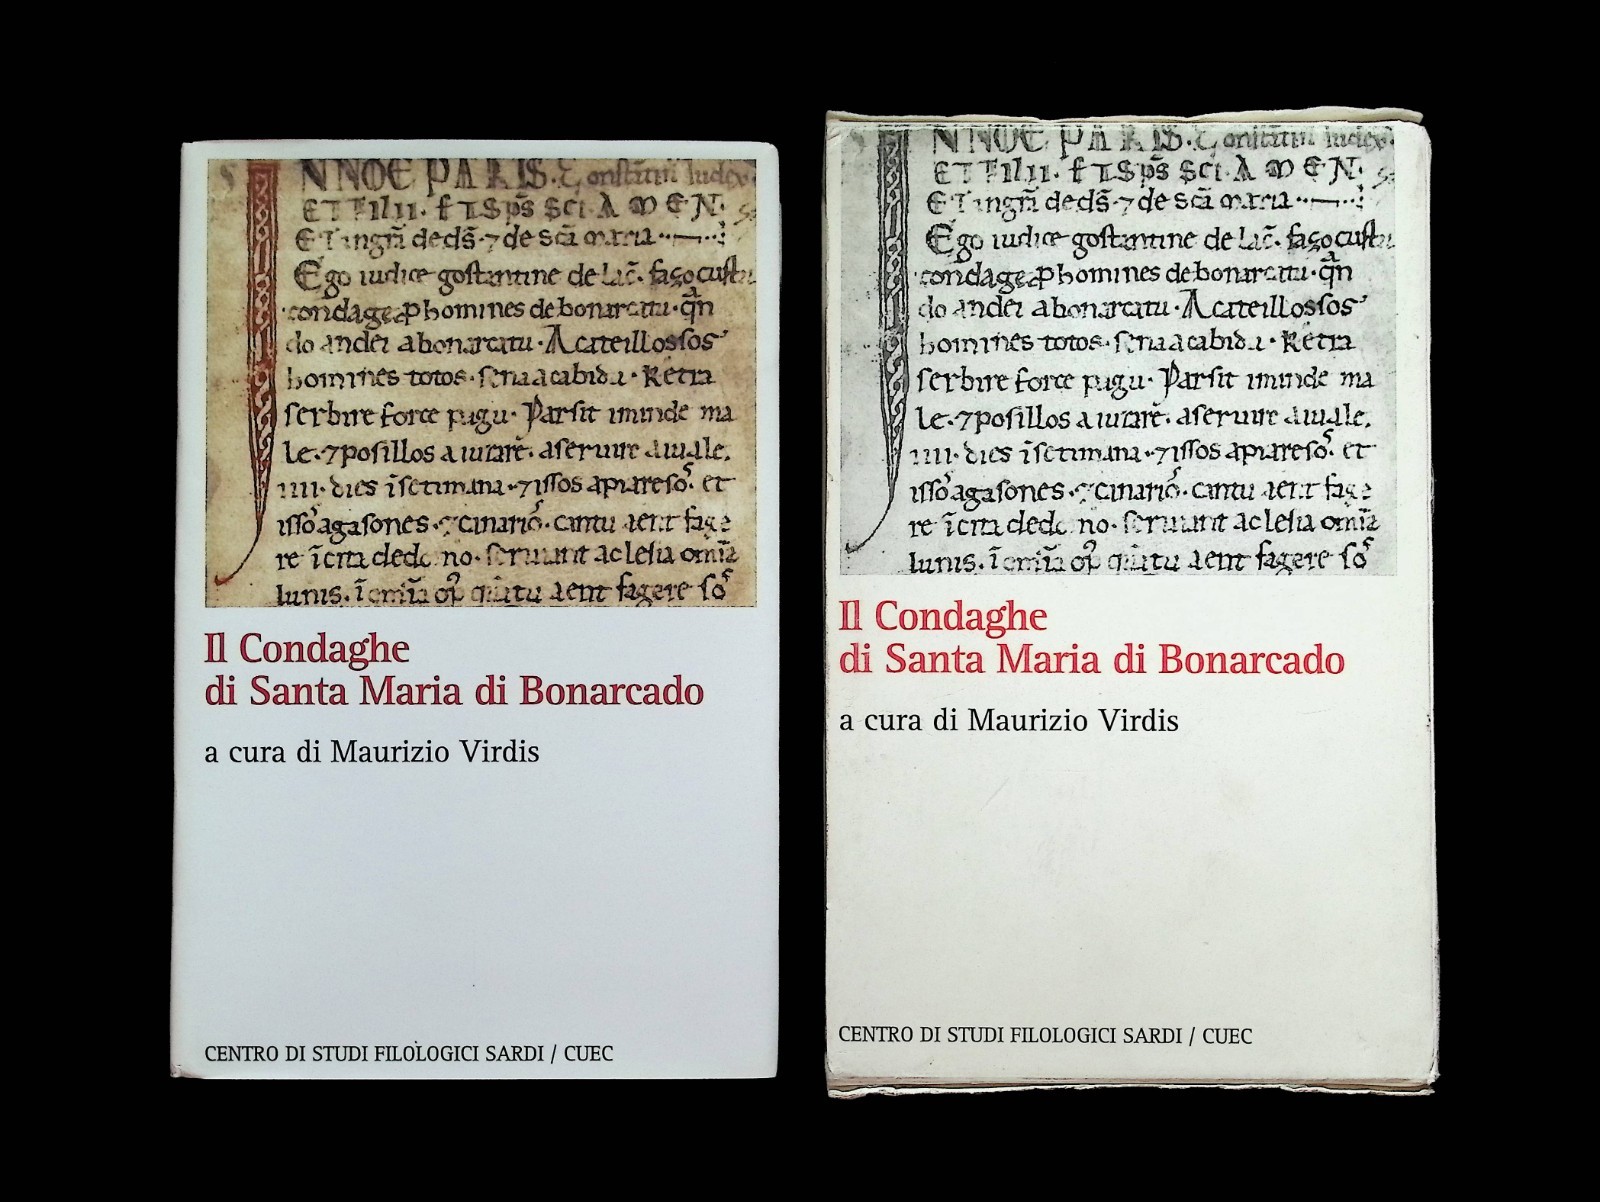 NNOE PARIS. Constantini iudex.
ET Filii. & SPS SCI. AMEN.
ET ingr̄ de ds̄ 7 de scā maria
Ego iudice gostantine de lac̄. fago custu
condage p homines de bonarcatu. qn
do andei a bonarcatu. Acateillos sos
homines totos. seria acabida. Retra
serbire force pagu. Parsit iminde ma
le. 7 posillos a iurare. a seruire a iuale.
IIII. dies ī setimana. 7 issos apiareso. et
isso agasones. 7 cinario. cantu aent fage
re ī cita dede no. seruiant a clesia omīa
lunis. ī omīa op̄ cantu aent fagere so
Il Condaghe
di Santa Maria di Bonarcado
a cura di Maurizio Virdis
CENTRO DI STUDI FILOLOGICI SARDI / CUEC
NNOE PARIS. Constantini iudex.
ET Filii. & SPS SCI. AMEN.
ET ingr̄ de ds̄ 7 de scā maria
Ego iudice gostantine de lac̄. fago custu
condage p homines de bonarcatu. qn
do andei a bonarcatu. Acateillos sos
homines totos. seria acabida. Retra
serbire force pagu. Parsit iminde ma
le. 7 posillos a iurare. a seruire a iuale.
IIII. dies ī setimana. 7 issos apiareso. et
isso agasones. 7 cinario. cantu aent fage
re ī cita dede no. seruiant a clesia omīa
lunis. ī omīa op̄ cantu aent fagere so
Il Condaghe
di Santa Maria di Bonarcado
a cura di Maurizio Virdis
CENTRO DI STUDI FILOLOGICI SARDI / CUEC